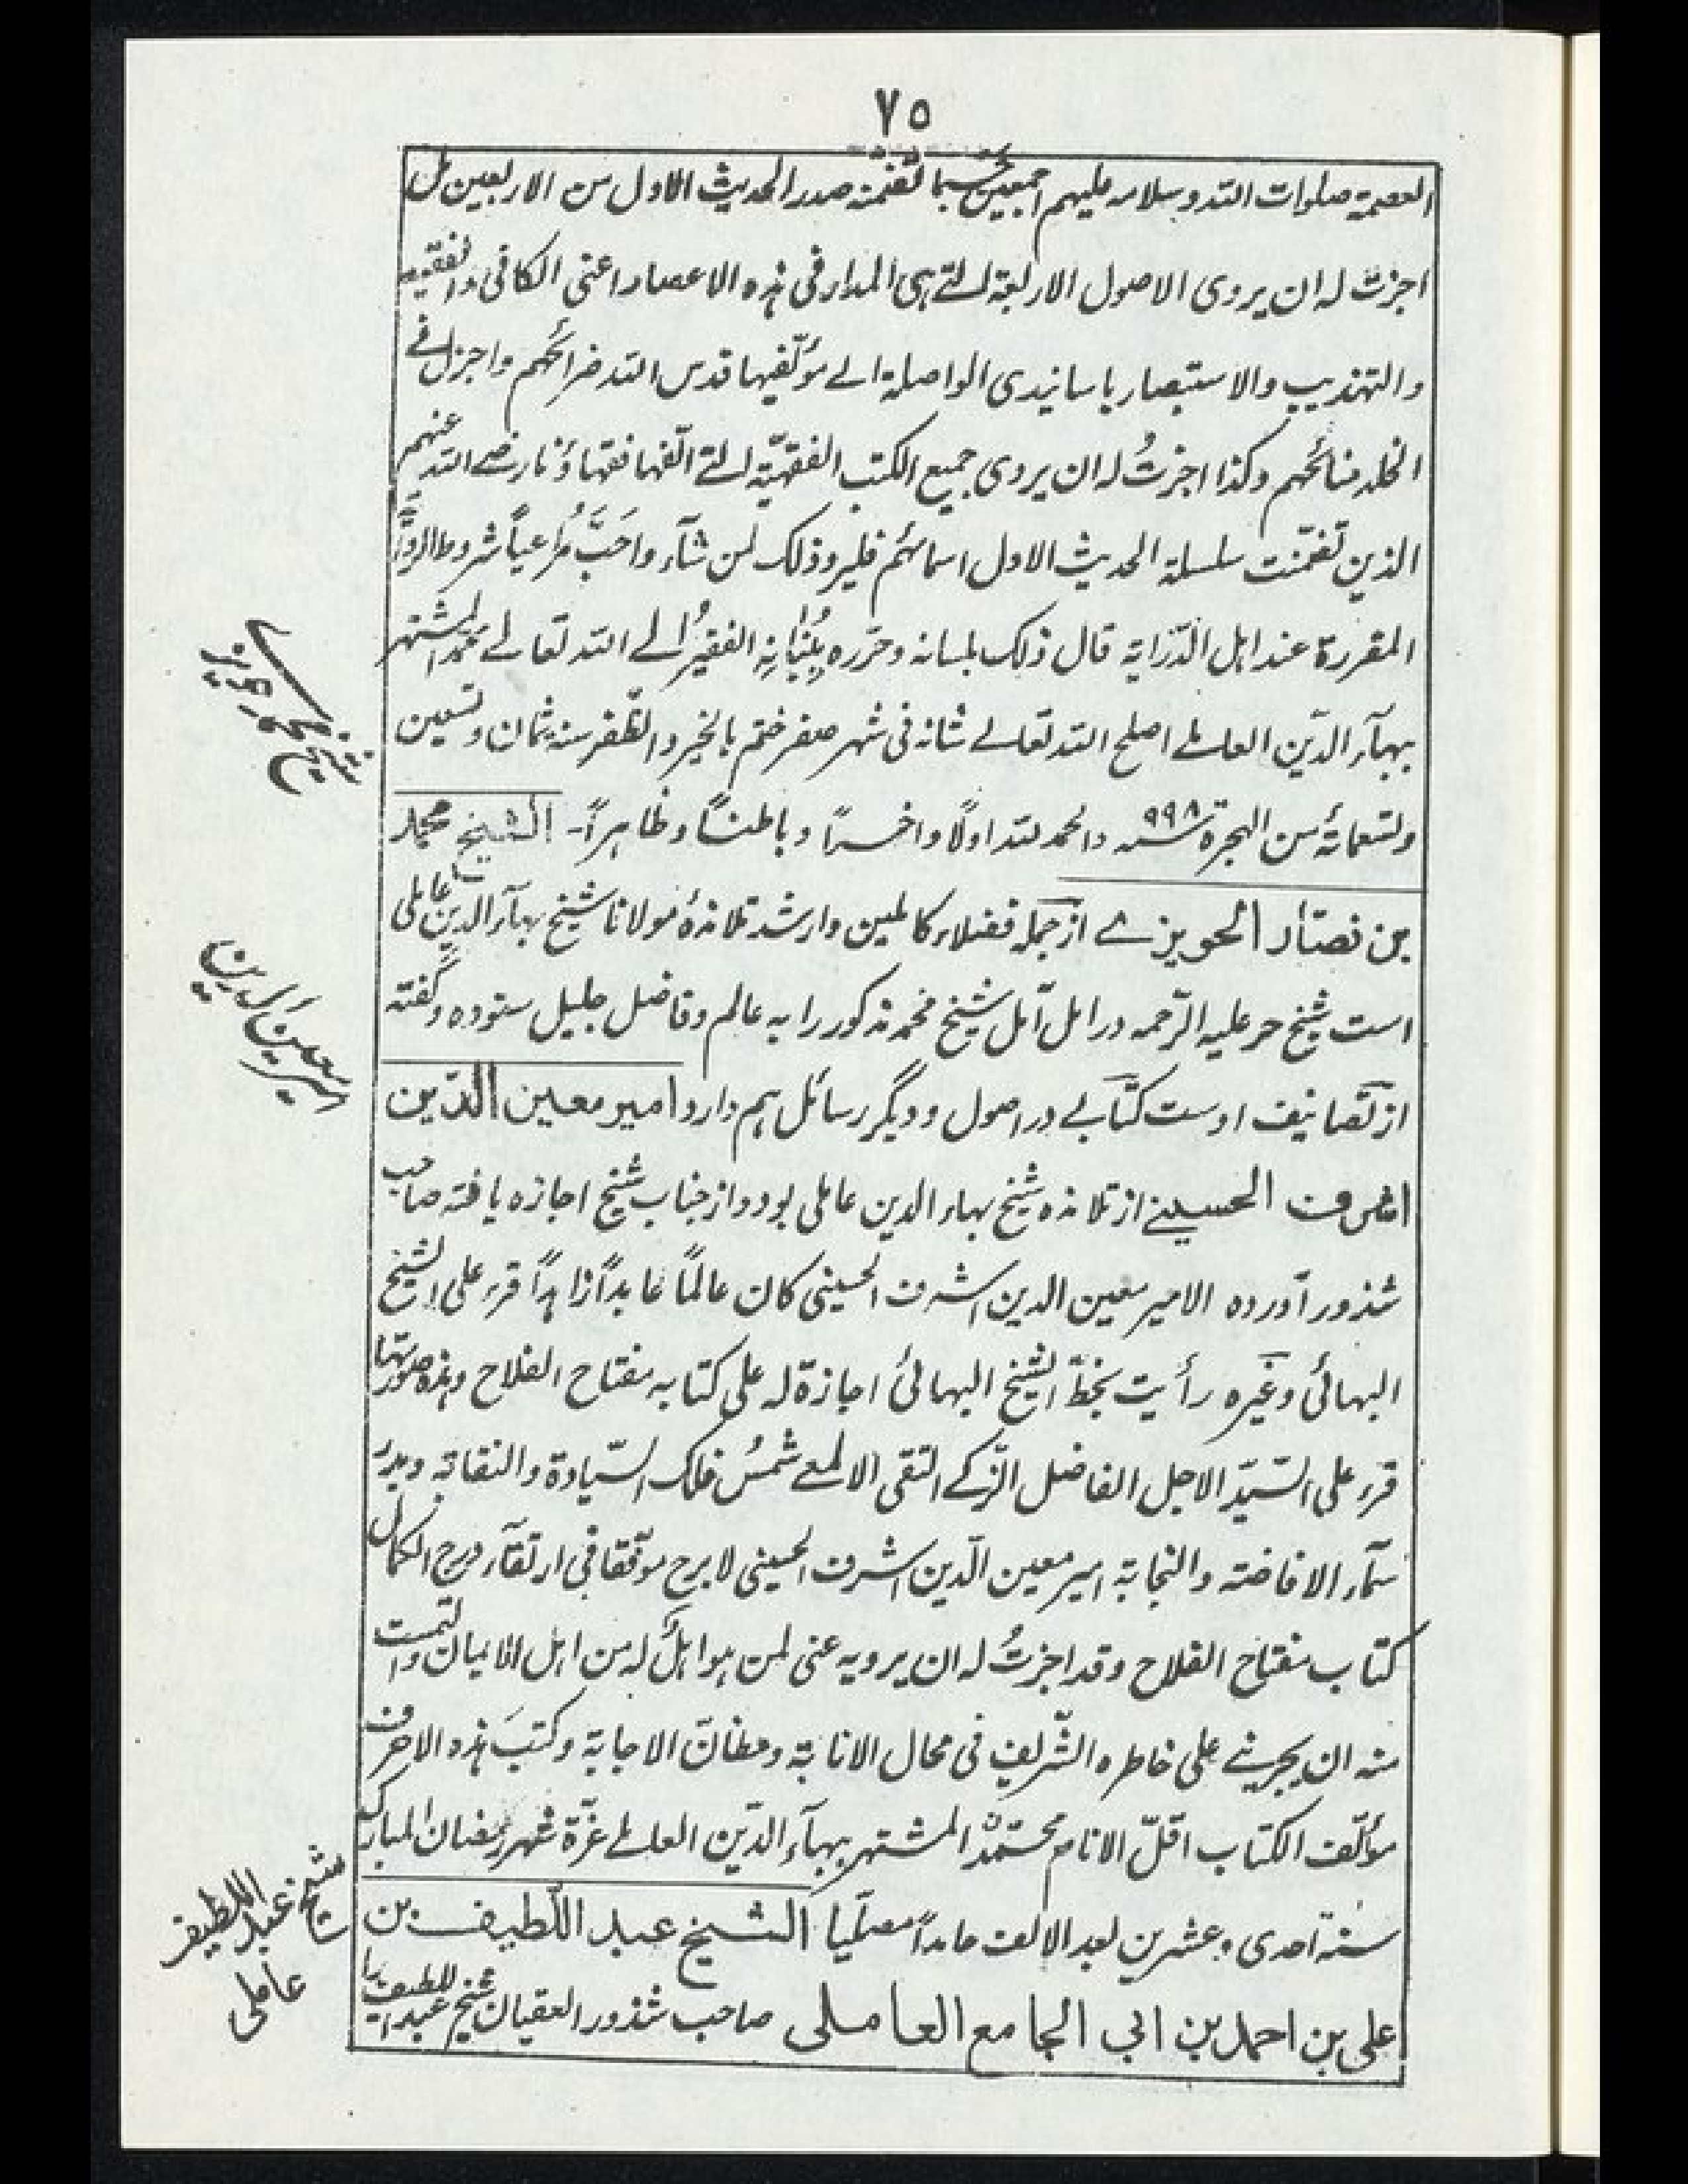 ٧٥
العصمة صلوات الله وسلامه عليهم اجمعين حسبما تضمنه صدر الحديث الاول من الاربعين
اجزت له ان يروى الاصول الاربعة التے هى المدار فى هذه الاعصار اعنى الكافى والفقيه
والتهذيب والاستبصار باسانيدى الواصلة الے مؤلّفيها قدس الله ضرائحهم واجزل فے
الخلد منائحهم وكذا اجزتُ له ان يروى جميع الكتب الفقهيّة التے الّفها فقهاؤنا رضے الله عنهم
الذين تضمّنت سلسلة الحديث الاول اسمائهم فليرو ذلك لمن شآء واحَبَّ مُراعياً شروط الروا
المقررة عند اهل الدّراية قال ذلك بلسانه وحرّره بِبُنٰانِهِ الفقيرُ الے الله تعالے محمّد المشتهر
ببهآء الدّين العاملے اصلح الله تعالے شانه فى شهر صفر ختم بالخير والظّفر سنة ثمان وتسعين
وتسعمائة من الهجرة سنه ٩٩٨ والحمد لله اولًا واخراً وباطناً وظاهراً- الشيخ محمد
بن نصّار الحويزے از جمله فضلاء كاملين وارشد تلامذهٔ مولانا شيخ بهآء الدين عاملى
است شيخ حر عليه الرّحمه در امل آمل شيخ محمد مذكور را به عالم وفاضل جليل ستوده وگفته
از تصانيف اوست كتابے در اصول وديگر رسائل هم دارد امير معين الدّين
اشرف الحسينے از تلامذه شيخ بهاء الدين عاملى بود واز جناب شيخ اجازه يافته صاحب
شذور آورده الامير معين الدين اشرف الحسينى كان عالماً عابداً زاهداً قرء على الشيخ
البهائى وغيره رأيت بخطّ الشيخ البهائى اجازة له على كتابه مفتاح الفلاح وهذه صورتها
قرء على السّيّد الاجل الفاضل الزّكے التقى الالمعے شمسُ فلك السّيادة والنقابة وبدرُ
سمآء الافاضة والنجابة امير معين الدّين اشرف الحسينى لا برح موفّقا فى ارتقآء درج الكمال
كتاب مفتاح الفلاح وقد اجزتُ له ان يرويه عنى لمن هو اهلٌ له من اهل الايمان والتمست
منه ان يجرينے على خاطره الشّريف فى محال الانابة ومظانّ الاجابة وكتبَ هذه الاحرف
مؤلّف الكتاب اقلّ الانام محمّدٌ المشتهر ببهآء الدّين العاملے غرّة شهر رمضان المبارك
سنة احدى وعشرين بعد الالف حامداً مصلّيا الشيخ عبد اللّطيف بن
على بن احمد بن ابى الجامع العاملى صاحب شذور العقيان شيخ عبد اللطيف را
امير معين الدين
شيخ عبد اللطيف
عاملى